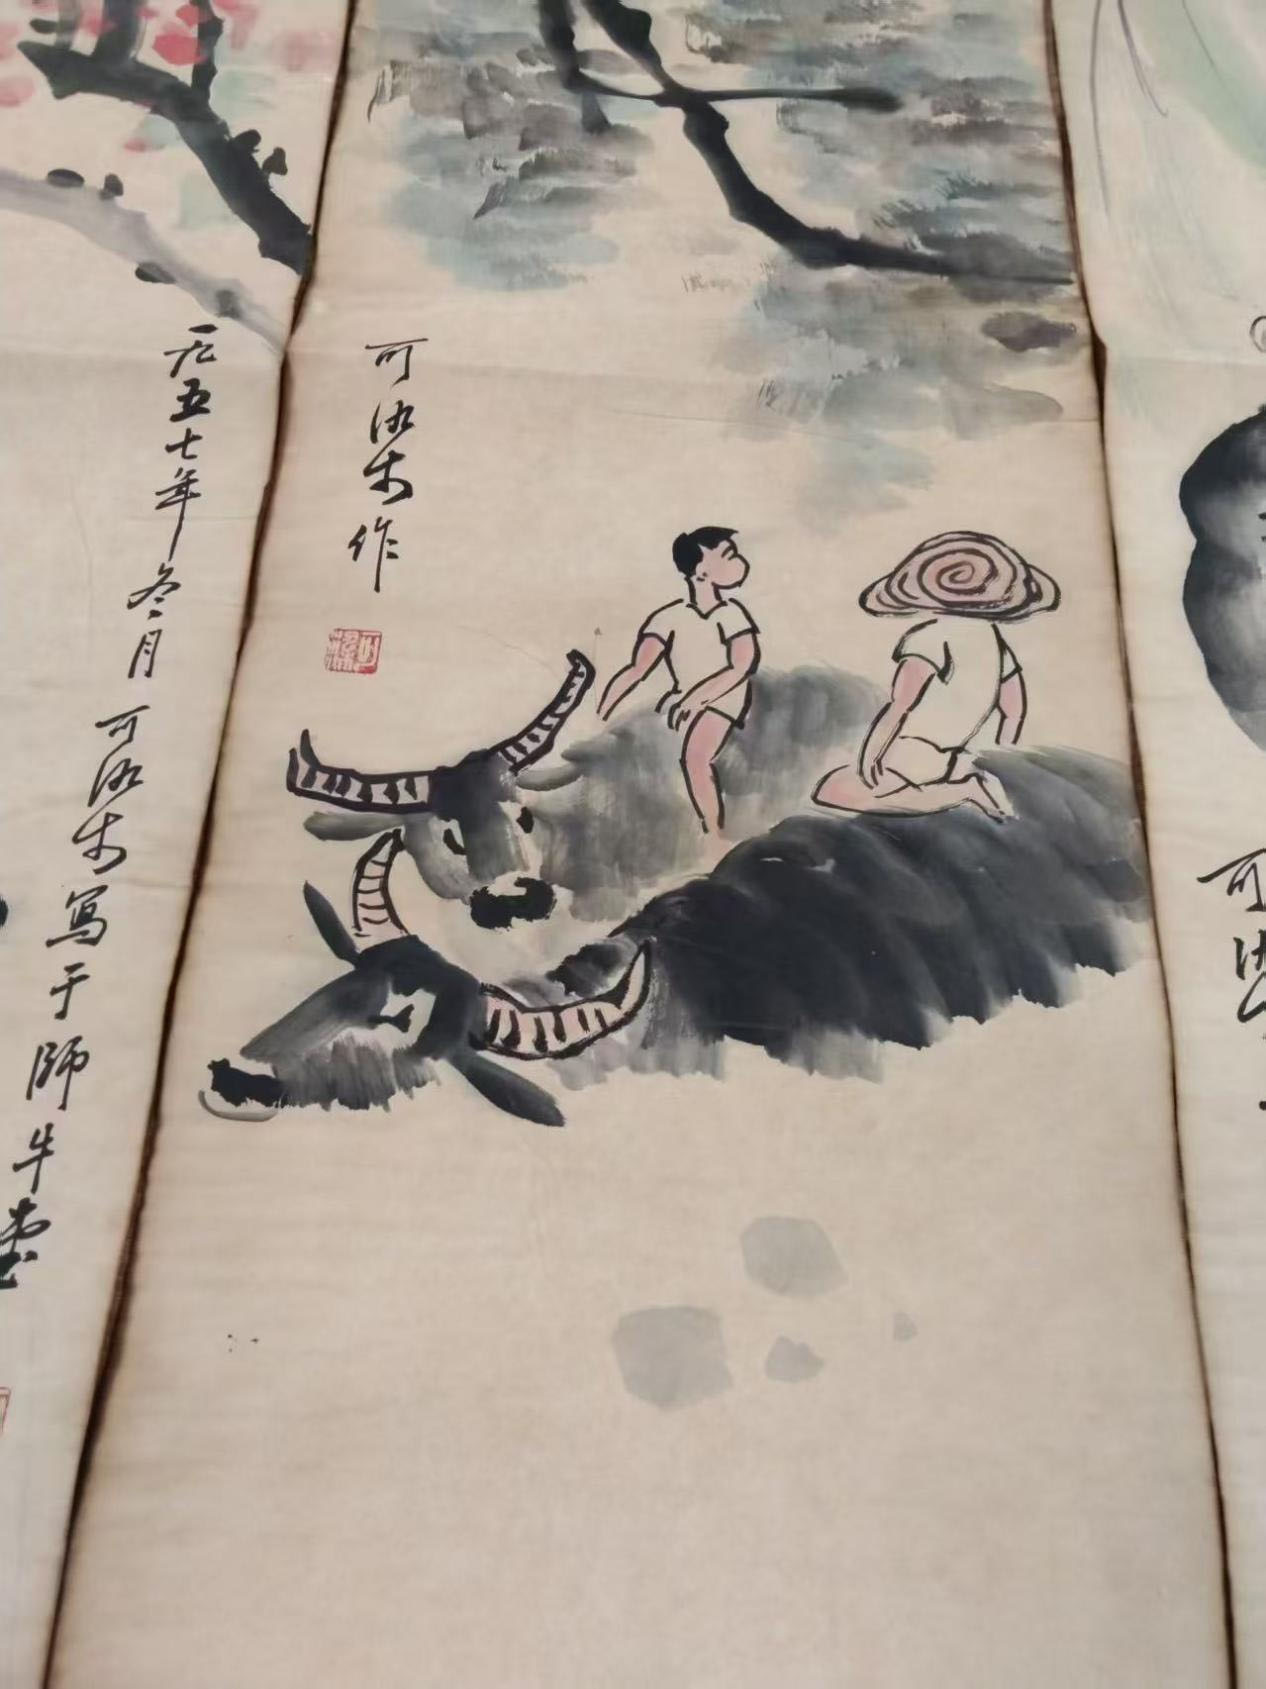 可染
可染作
可染
一九五七年冬月可染寫于師牛堂